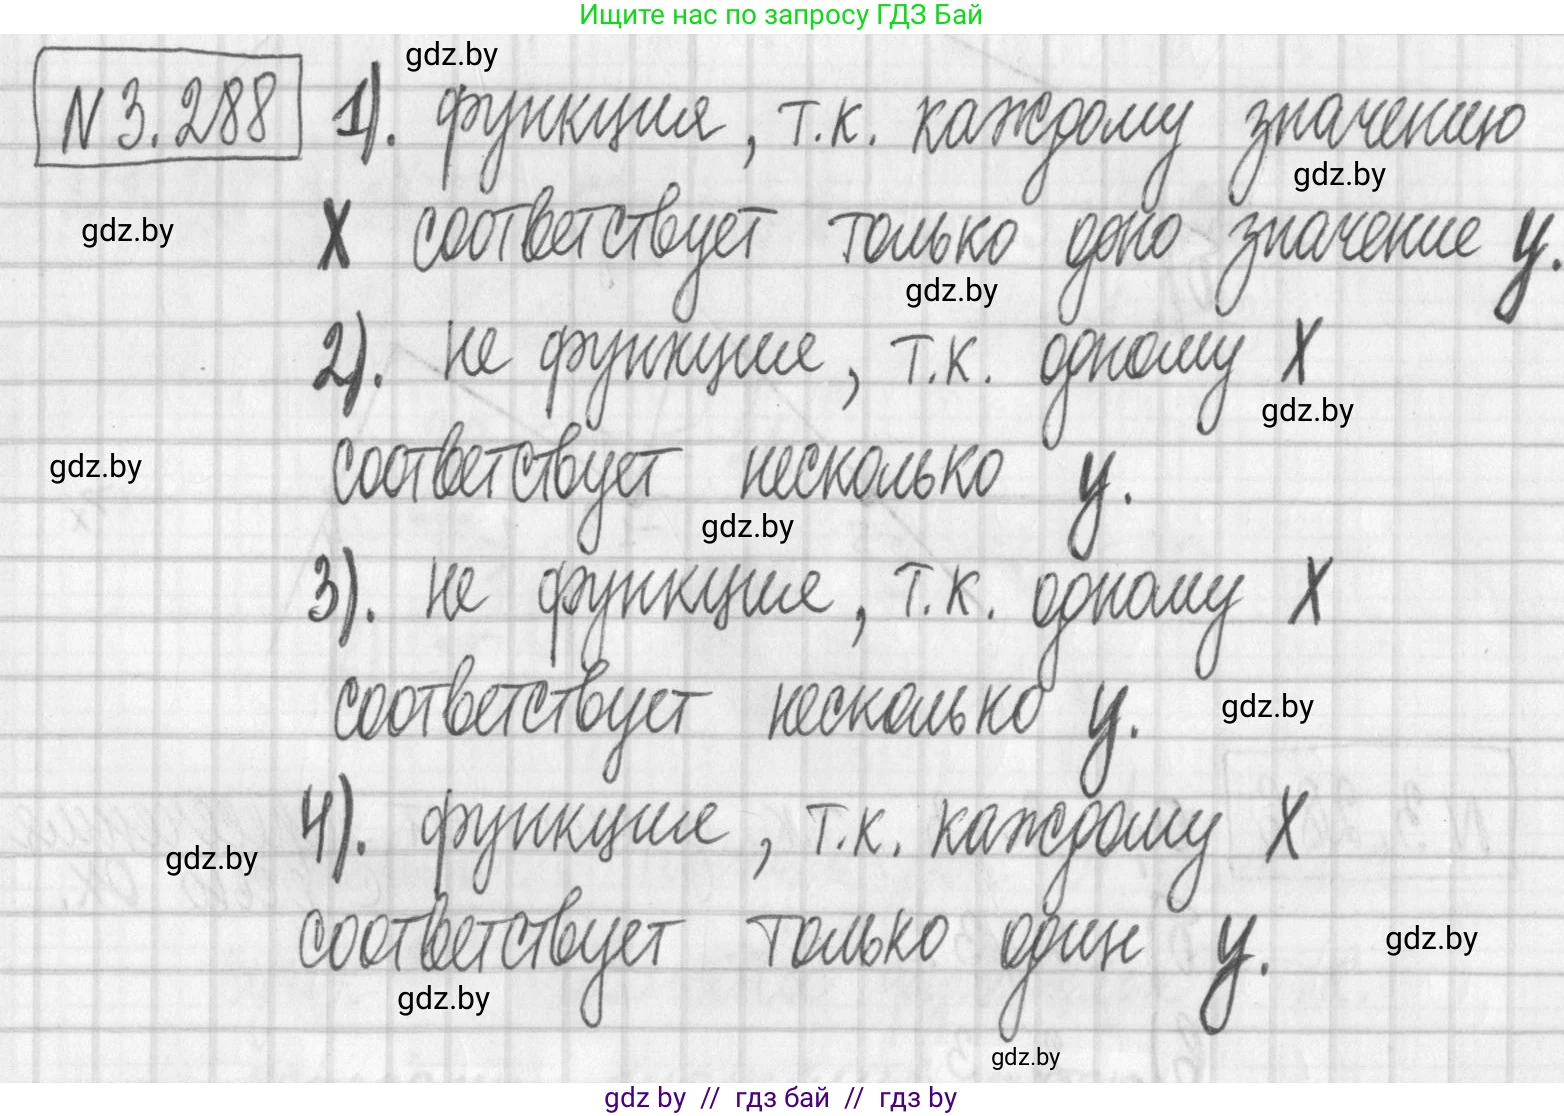 Ищите нас по запросу ГДЗ Бай
gdz.by
N 3.288 1). функция, т.к. каждому значению
gdz.by
gdz.by
x соответствует только одно значение y.
gdz.by
2). не функция, т.к. одному x
gdz.by
gdz.by
соответствует несколько y.
gdz.by
3). не функция, т.к. одному x
соответствует несколько y.
gdz.by
4). функция, т.к. каждому x
gdz.by
соответствует только один y.
gdz.by
gdz.by
gdz.by
gdz by // гдз бай // гдз by